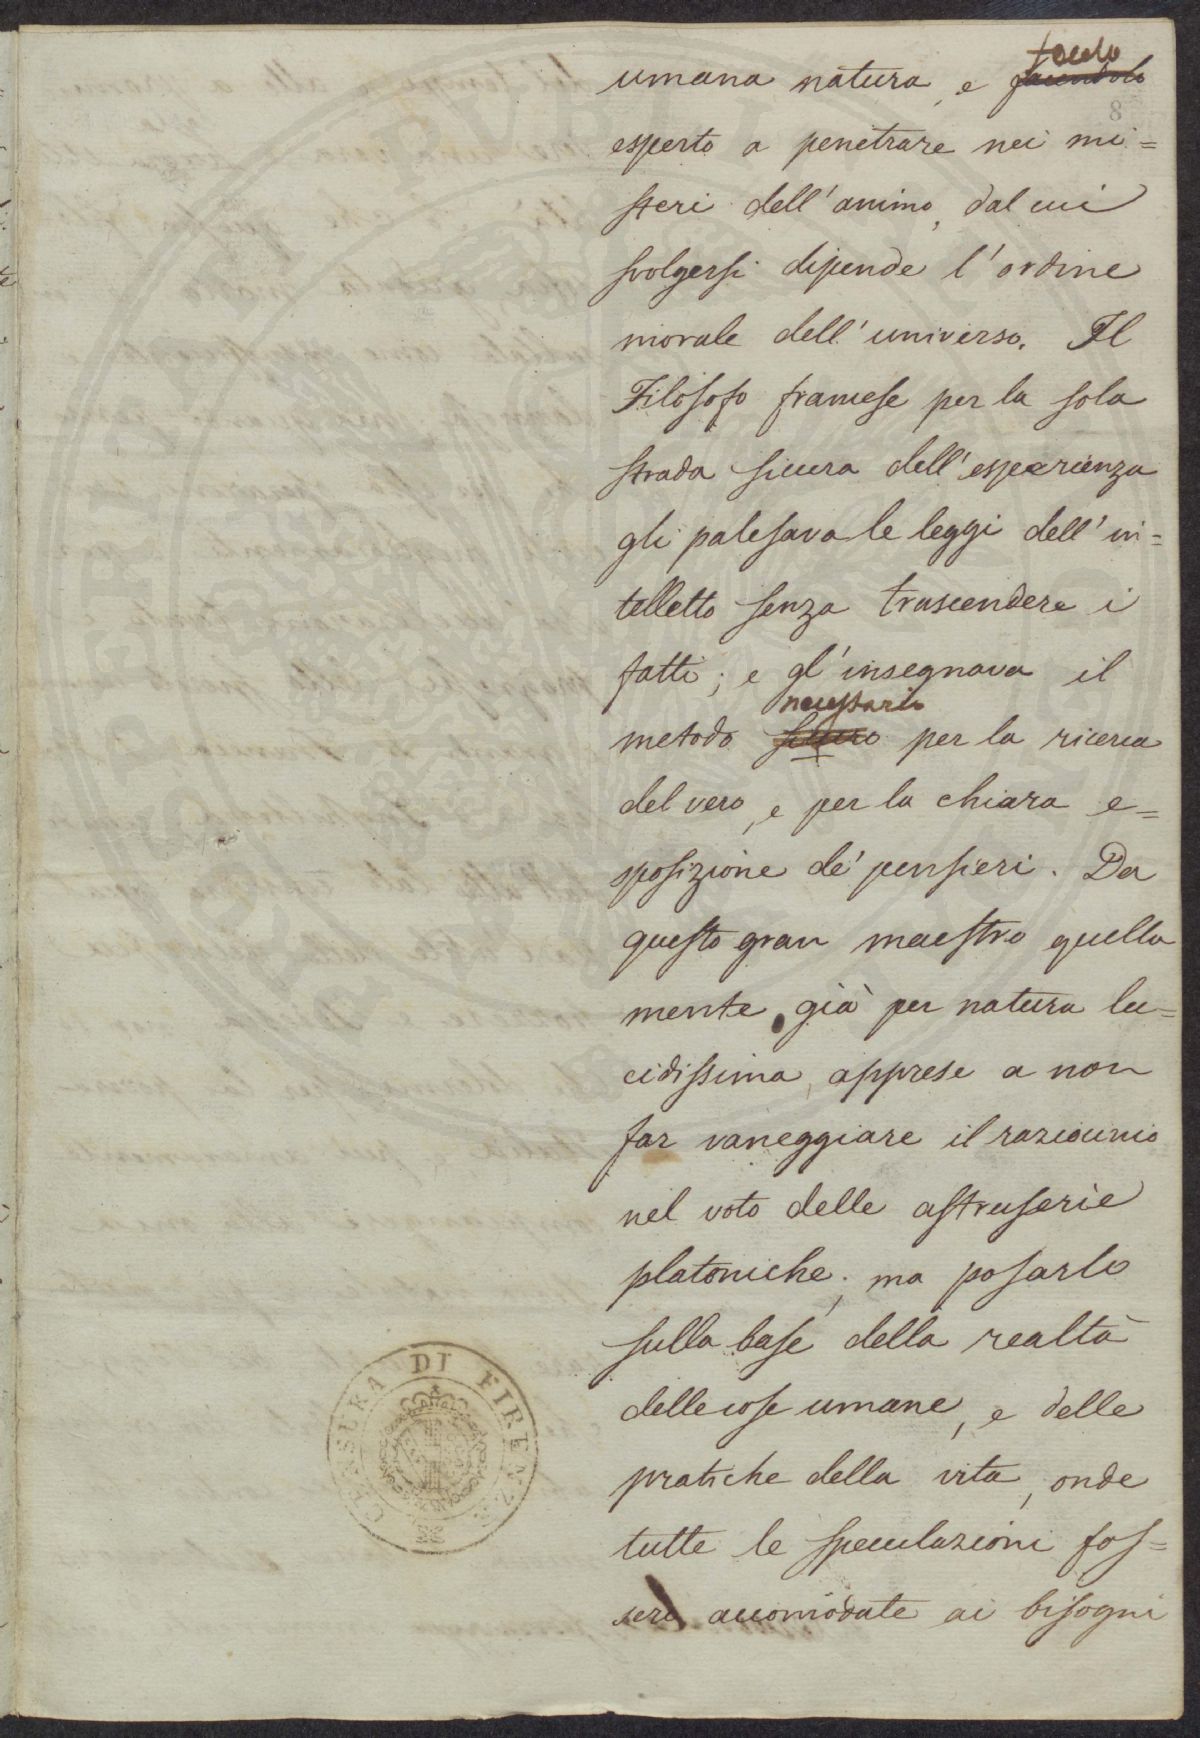 umana natura, e facendolo
facendo
8
esperto a penetrare nei mi=
steri dell'animo, dal cui
svolgersi dipende l'ordine
morale dell'universo. Il
Filosofo francese per la sola
strada sicura dell'esperienza
gli palesava le leggi dell'in=
telletto senza trascendere i
fatti; e gl'insegnava il
necessario
metodo sicuro per la ricerca
del vero, e per la chiara e=
sposizione de' pensieri. Da
questo gran maestro quella
mente, già per natura lu=
cidissima, apprese a non
far vaneggiare il raziocinio
nel voto delle astruserie
platoniche; ma posarlo
sulla base della realtà
delle cose umane, e delle
pratiche della vita, onde
tutte le speculazioni fos=
sero accomodate ai bisogni
CENSURA DI FIRENZE